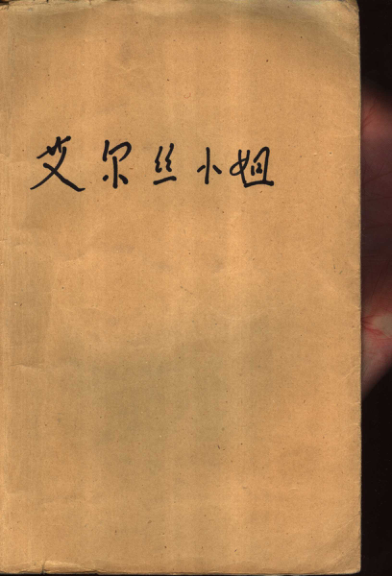 艾尔丝小姐